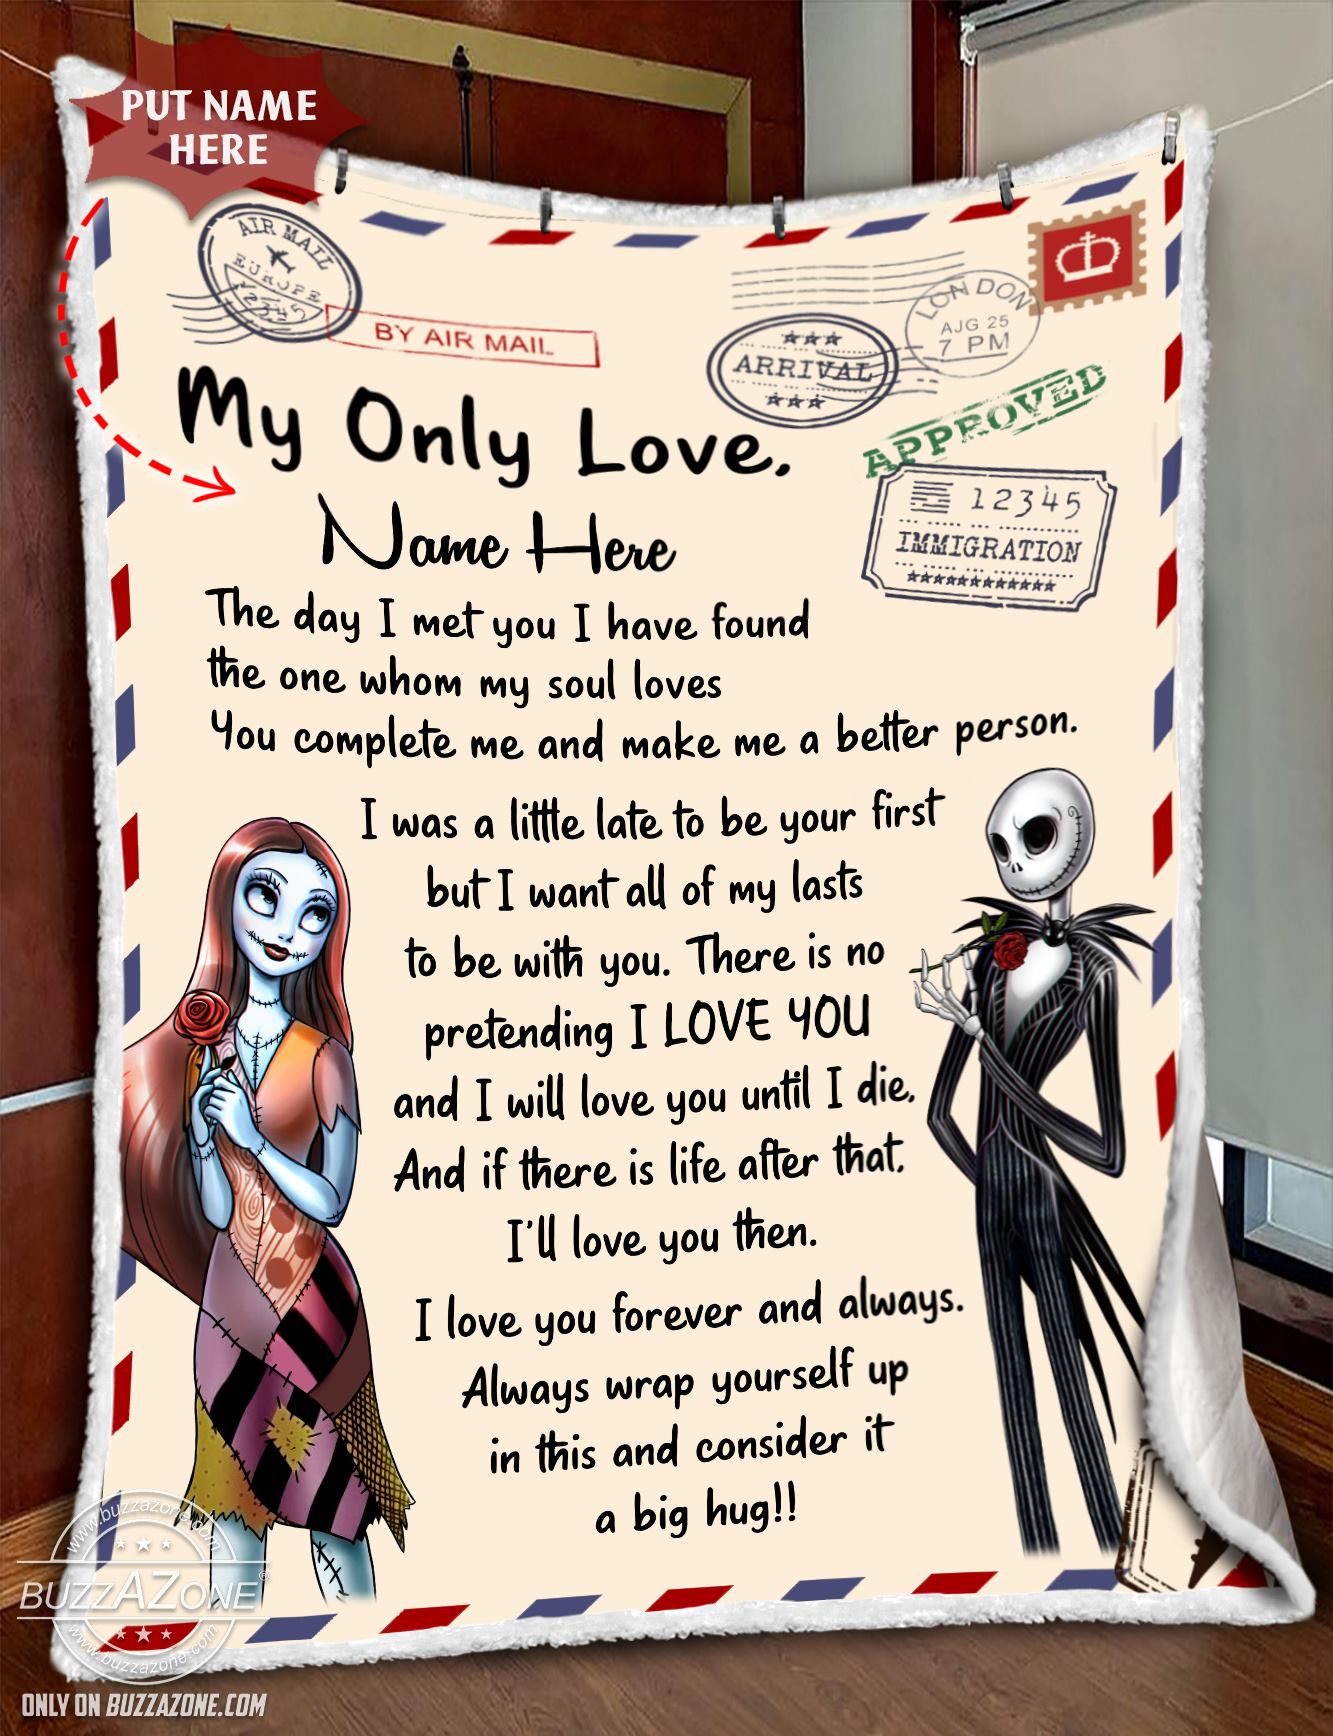 PUT NAME
HERE
AIR MAIL
EUROPE
12345
BY AIR MAIL
LONDON
AJG 25
7 PM
★★★
ARRIVAL
★★★
APPROVED
12345
IMMIGRATION
★★★★★★★★★★★
My Only Love,
Name Here
The day I met you I have found
the one whom my soul loves
You complete me and make me a better person.
I was a little late to be your first
but I want all of my lasts
to be with you. There is no
pretending I LOVE YOU
and I will love you until I die,
And if there is life after that,
I'll love you then.
I love you forever and always.
Always wrap yourself up
in this and consider it
a big hug!!
www.buzzazone.com
BUZZAZONE®
www.buzzazone.com
ONLY ON BUZZAZONE.COM